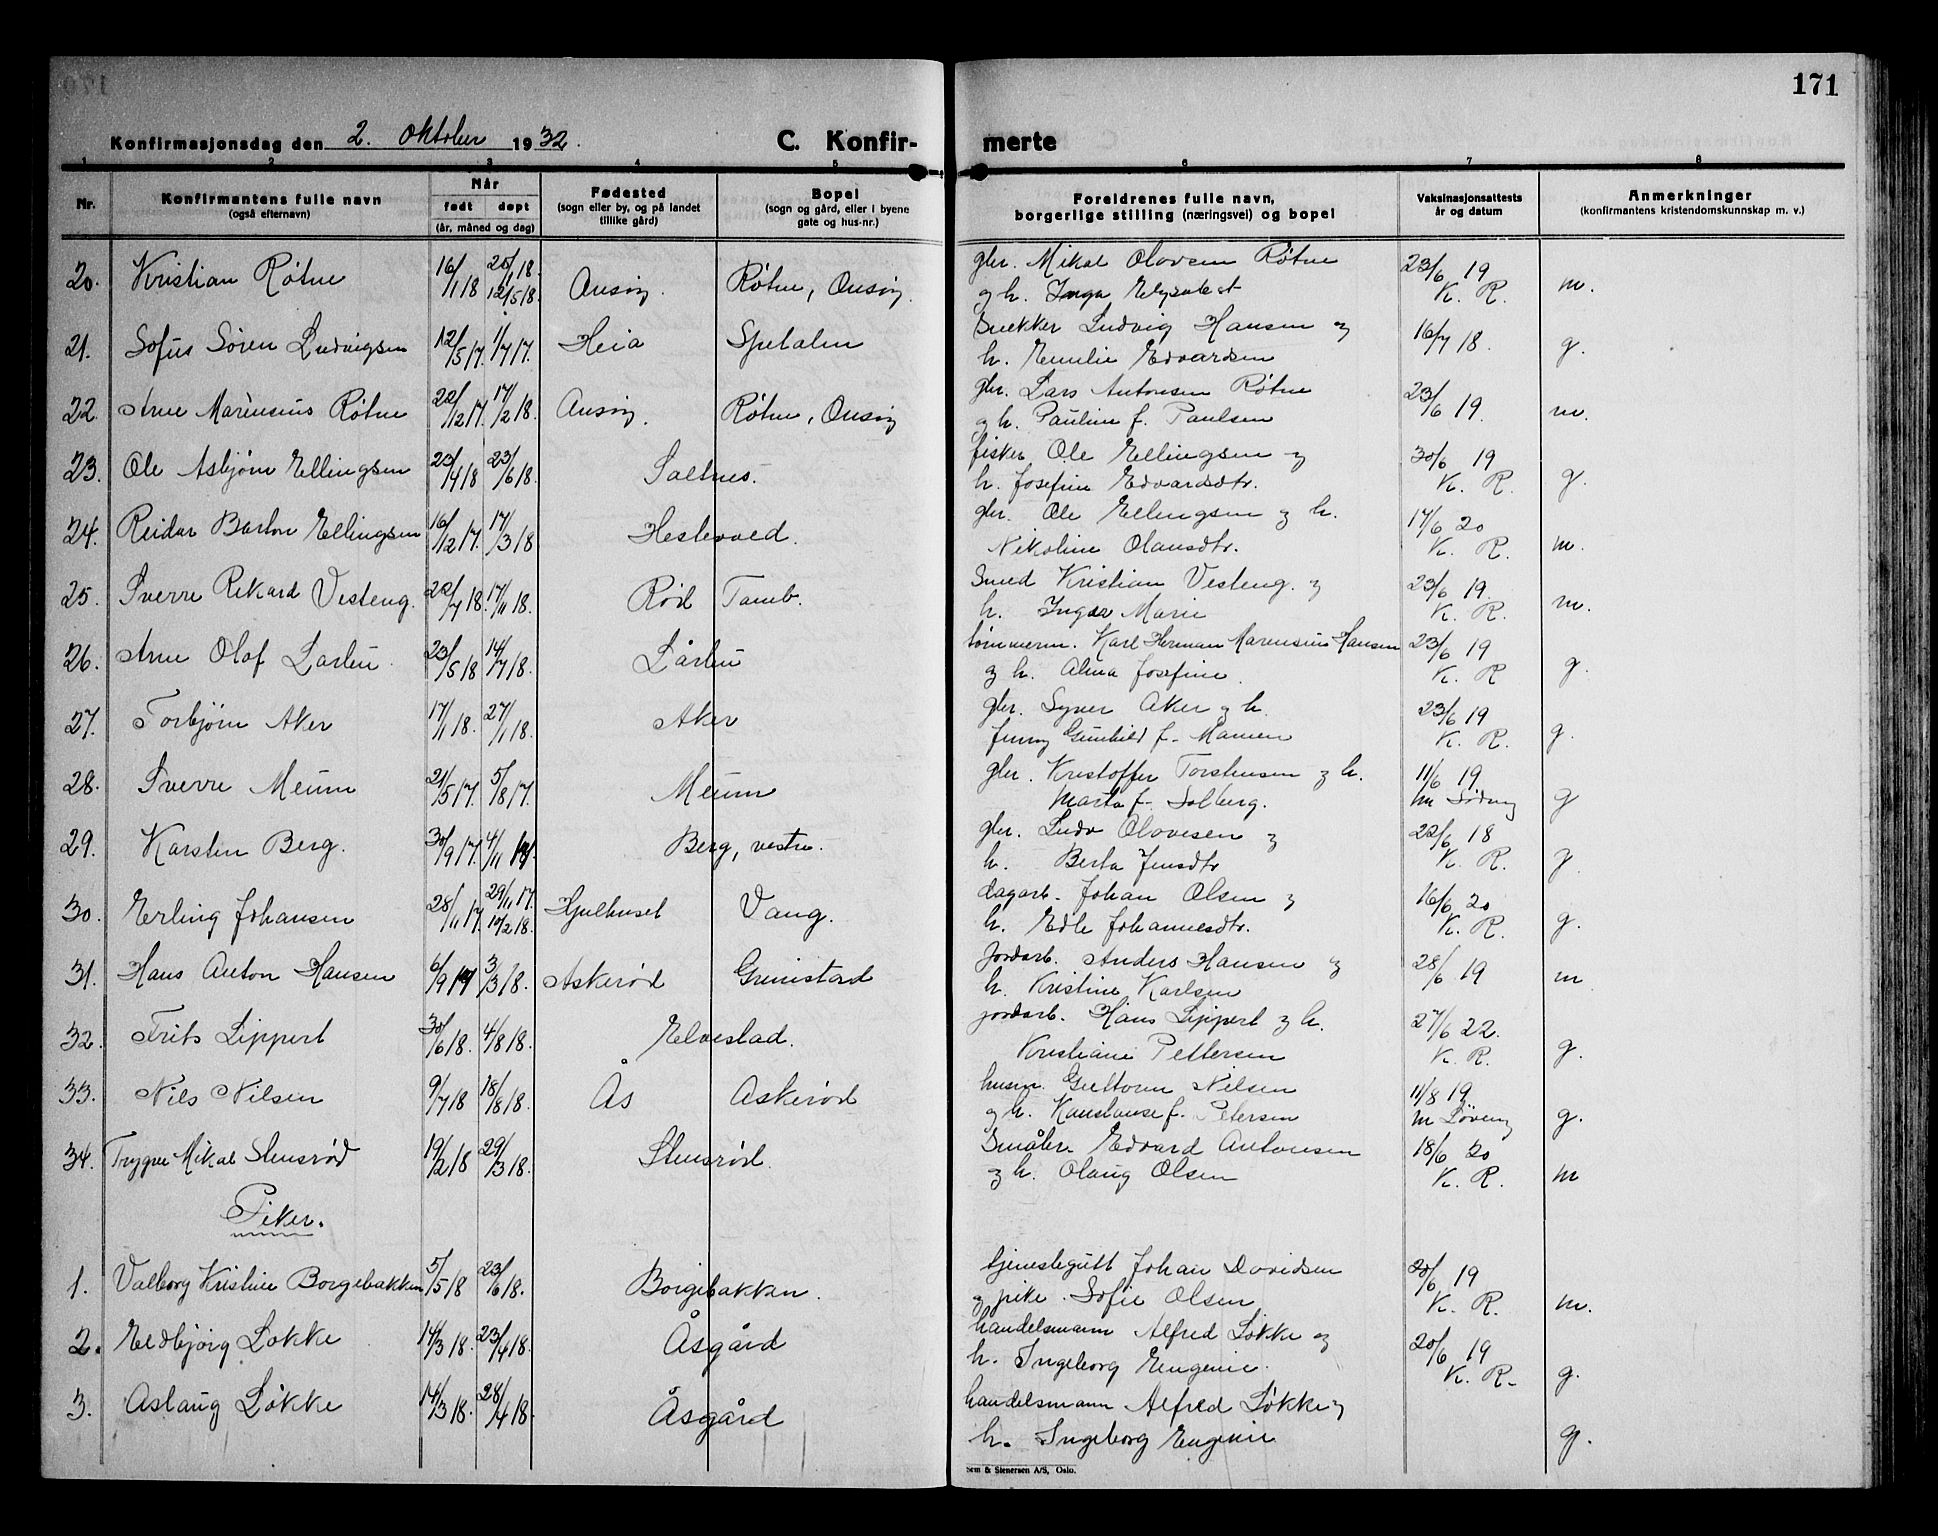 171
Konfirmasjonsdag den 2. Oktober 1932.
C. Konfirmerte
1 2 3 4 5 6 7 8
Nr.
Konfirmantens fulle navn
(også efternavn)
Når
født døpt
(år, måned og dag)
Fødested
(sogn eller by, og på landet
tillike gård)
Bopel
(sogn og gård, eller i byene
gate og hus-nr.)
Foreldrenes fulle navn,
borgerlige stilling (næringsvei) og bopel
Vaksinasjonsattests
år og datum
Anmerkninger
(konfirmantens kristendomskunnskap m. v.)
20. Kristian Røtne 16/1 18 20/1 18. 12/5 18. Onsøy. Røtne, Onsøy. gbr. Mikal Olovsen Røtne 23/6 19 m.
og h. Inga Elysabet K. R.
21. Sofus Søren Ludvigsen 12/5 17. 1/7 17. Heia Spetalen Snekker Ludvig Hansen og 16/7 18. g.
h. Emilie Edvardsen
22. Arne Marensius Røtne 22/12 17. 17/2 18. Onsøy. Røtne, Onsøy gbr. Lars Antonsen Røtne 23/6 19. m.
og h. Pauline f. Paulsen
23. Ole Asbjørn Ellingsen 23/4 18 23/6 18. Saltnes. fisker Ole Ellingsen og 30/6 19 g.
h. Josefine Edvardsdtr. K. R.
24. Reidar Barton Ellingsen 16/12 17. 17/3 18 Hestevold. gbr. Ole Ellingsen og h. 17/6 20 m.
Nikoline Olausdtr. K. R.
25. Sverre Rikard Vesteng. 22/7 18. 17/11 18. Rød Tomb. Smed Kristian Vesteng. og 23/6 19. m.
h. Inga Marie K. R.
26. Arne Olof Larbu. 23/5 18 14/7 18. Lårbu tømmerm. Karl Herman Marensius Hansen 23/6 19 g.
og h. Alma Josefine. K. R
27. Torbjørn Aker 17/1 18. 27/1 18. Aker gbr. Syver Aker og h. 23/6 19 g.
Jenny Gunhild f. Mamen K. R.
28. Sverre Meum 21/5 17. 5/8 17. Meum gbr. Kristoffer Torstensen og h. 11/6 19 g
Marta f. Solberg.
29. Karsten Berg. 30/9 17. 4/11 17. Berg, vestre. gbr. Ludv Olovesen og 22/6 18 g.
h. Berta Jensdtr K. R.
30. Erling Johansen 28/11 17. 29/11 17. 10/2 18. Hjulhuset Vang. dagarb. Johan Olsen og 16/6 20 g.
h. Edle Johannesdtr. K. R.
31. Hans Anton Hansen 6/9 17 3/3 18. Askerød Grimstad Jordarb. Anders Hansen og 28/6 19 m
h. Kristine Karlsen
32. Frits Lippert 30/6 18. 4/8 18. Elvestad. jordarb. Hans Lippert og h. 27/6 22. g.
Kristiane Pettersen K. R.
33. Nils Nilsen 9/7 18 18/8 18. Ås Askerød husm. Guttorm Nilsen 11/8 19 g.
og h. Konstanse f. Petersen
34. Trygve Mikal Stensrød 19/2 18 29/3 18. Stensrød. Småbr. Edvard Antonsen 18/6 20 m
og h. Olaug Olsen K. R.
Piker.
1. Valborg Kristine Borgebakken 5/5 18 23/6 18. Borgebakken. tjenestegutt Johan Davidsen 20/6 19 m.
og pike. Sofie Olsen K. R.
2. Eldbjørg Løkke 14/3 18. 23/4 18. Åsgård handelsmann Alfred Løkke og 20/6 19 g.
h. Ingeborg Eugenie. K. R.
3. Aslaug Løkke 14/3 18. 28/4 18. Åsgård handelsmann Alfred Løkke og
h. Ingeborg Eugenie g.
Sem & Stenersen A/S, Oslo.